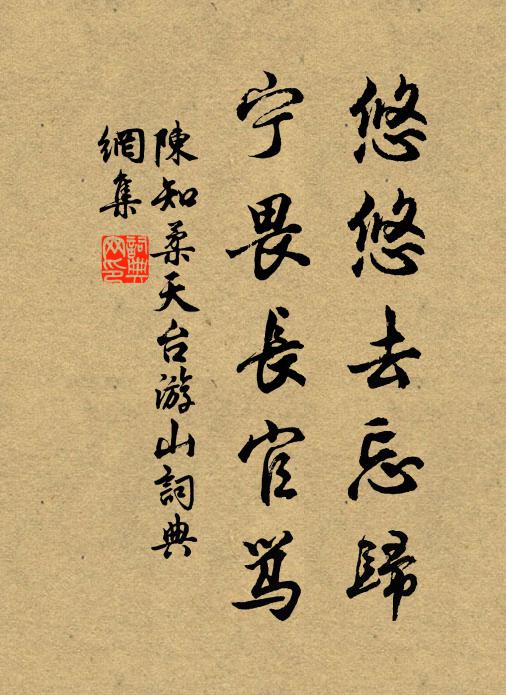 悠悠去忘歸
宁畏長官骂
陳知柔天台游山詞典
網集
詞典
网印